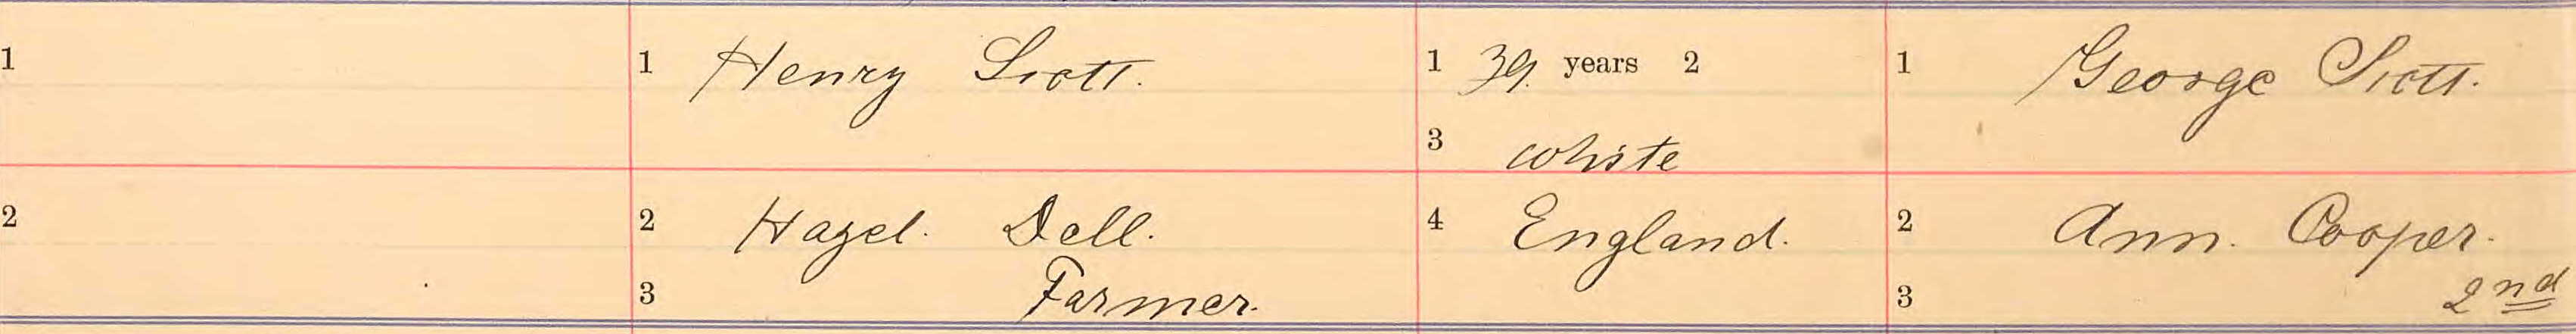 1
1 Henry Scott.
1 39. years 2
1 George Scott.
3 white
2
2 Hazel. Dell.
4 England.
2 Ann. Cooper.
3 Farmer.
3 2nd